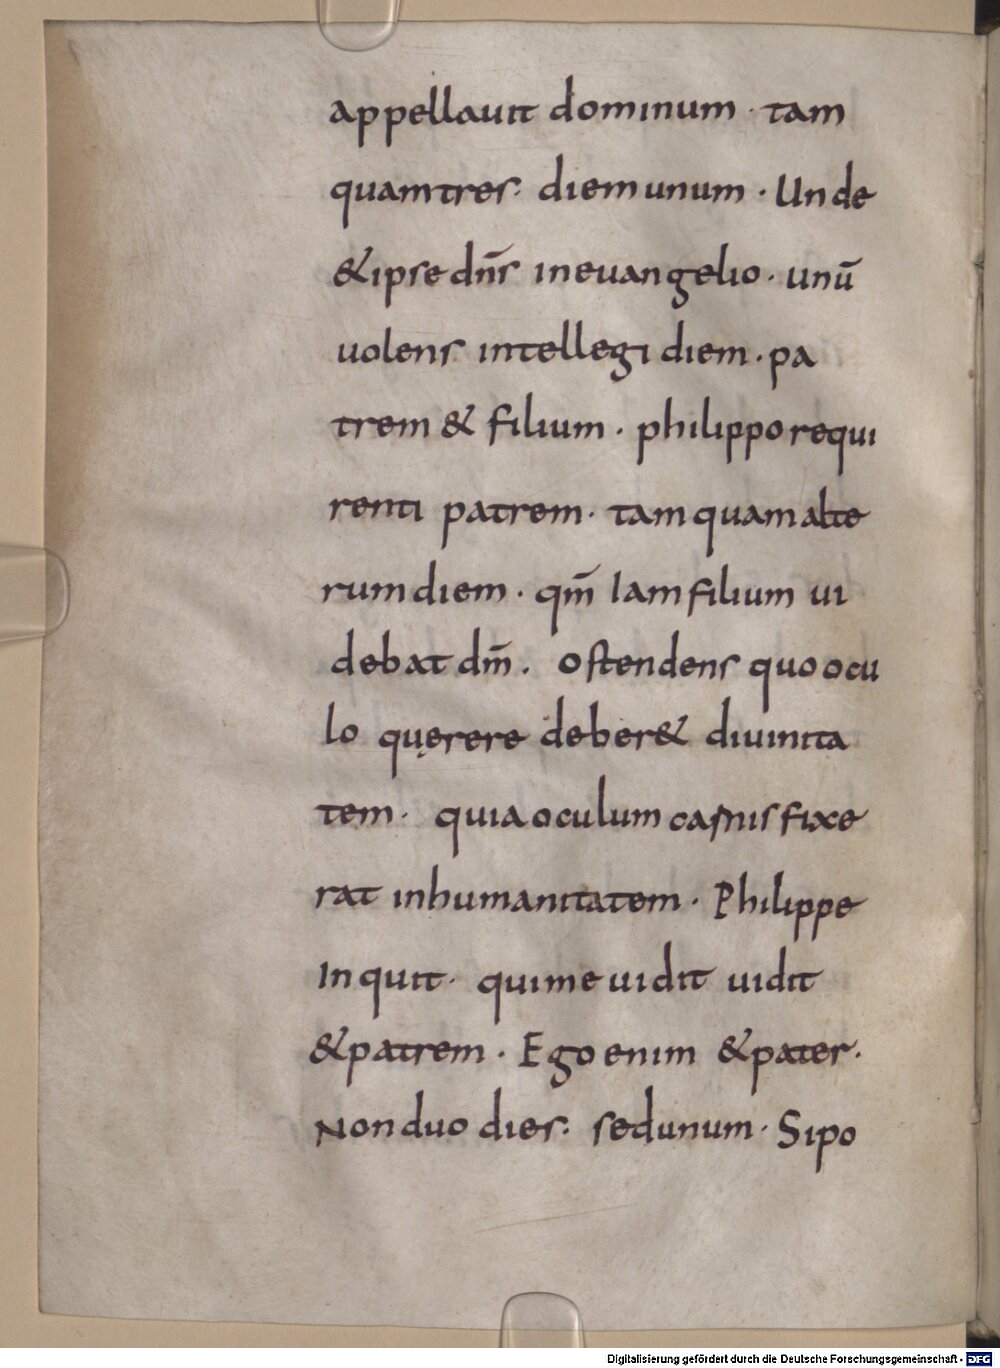 appellauit dominum · tam
quam tres · diem unum · Unde
& ipse dn̄s in euangelio · unū
uolens intellegi diem · pa
trem & filium · philippo requi
renti patrem · tam quam alte
rum diem · qm̄ Iam filium ui
debat dm̄ . ostendens quo ocu
lo quęrere deber& diuinita
tem · quia oculum carnis fixe
rat in humanitatem · Philippe
Inquit · qui me uidit uidit
& patrem · Ego enim & pater ·
Non duo dies · sed unum · Si po
Digitalisierung gefördert durch die Deutsche Forschungsgemeinschaft - DFG